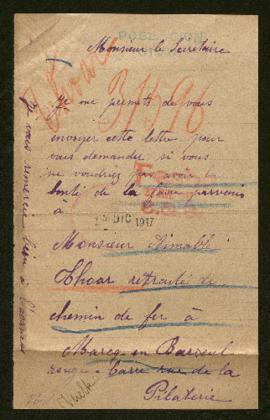 POBLACION
Monsieur le Secrétaire
Thoar
31596
Je me permets de vous
envoyer cette lettre pour
vous demander si vous
ne voudriez pas avoir la
bonté de la faire parvenir
à
DIC 1917
Monsieur Aimable
Thoar retraité de
chemin de fer à
Marcq-en-Barœul
rouge-Barre rue de la
Pilaterie
Je vous remercie bien à l'avance